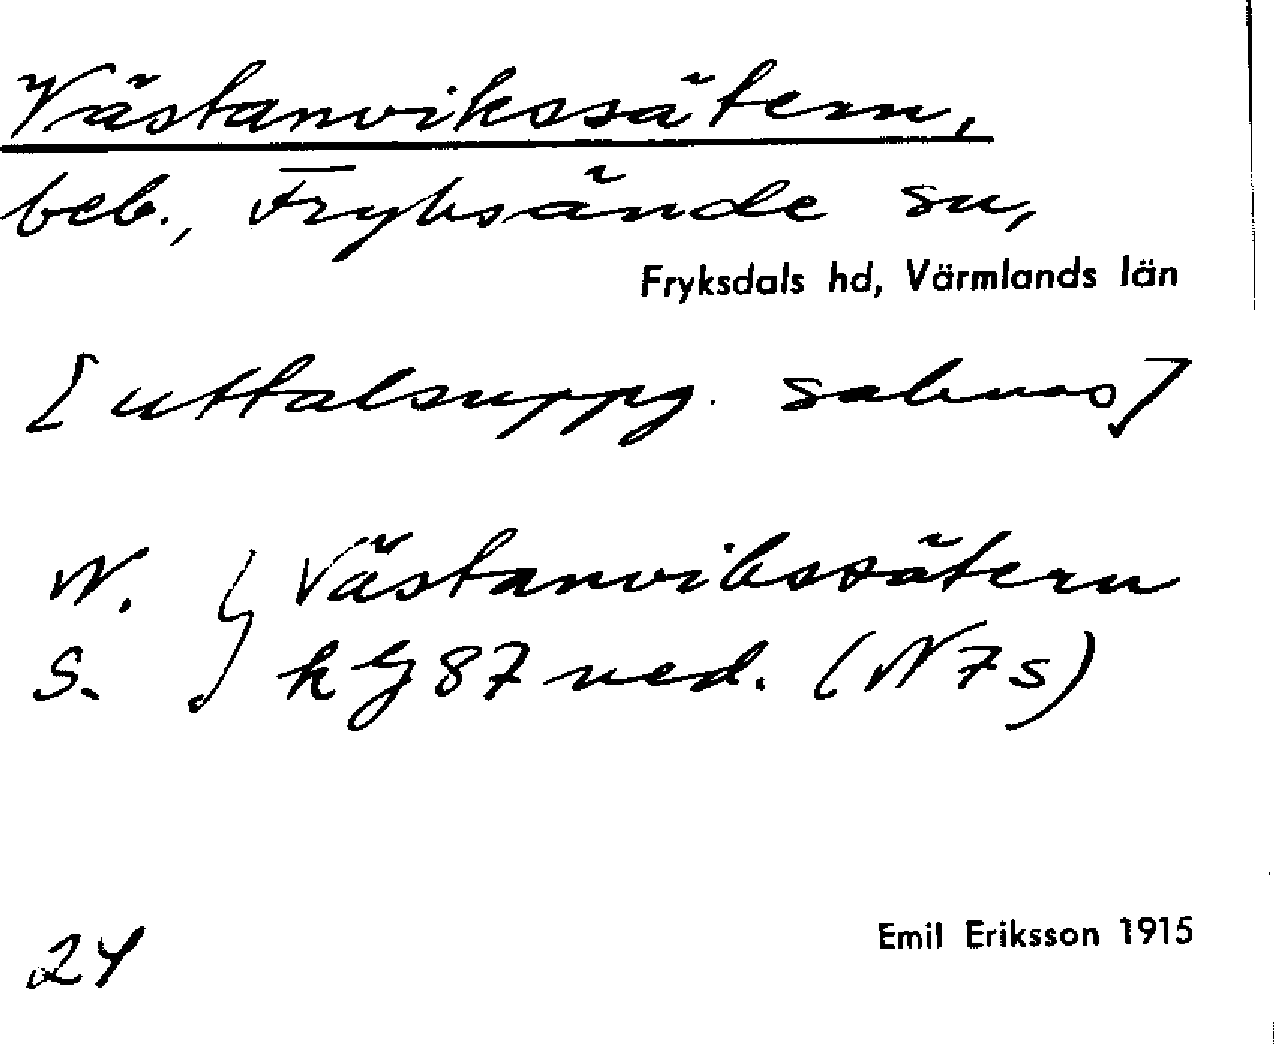 Västanvikssätern,
beb., Fryksände sn,
Fryksdals hd, Värmlands län
[uttalsuppg. saknas]
N. } Västanvikssätern
S. } kG 87 ned. (N 7 s)
24
Emil Eriksson 1915